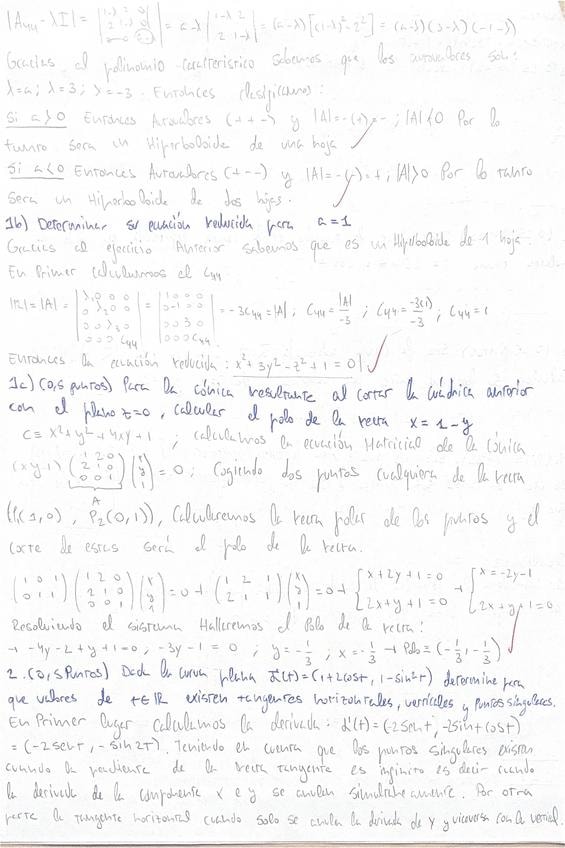 |A₄₄ - λI| = |1-λ 2 0; 2 1-λ 0; 0 0 a-λ| = a-λ |1-λ 2; 2 1-λ| = (a-λ)[(1-λ)² - 2²] = (a-λ)(3-λ)(-1-λ)
Gracias al polinomio caracteristico sabemos que los autovalores son:
λ=a ; λ=3 ; λ=-3. Entonces clasificamos:
Si a>0 Entonces Autovalores (++-) y |A|=-(+)=- ; |A|<0 Por lo
tanto sera un Hiperboloide de una hoja
Si a<0 Entonces Autovalores (+--) y |A|=-(-)=+ ; |A|>0 Por lo tanto
sera un Hiperboloide de dos hojas.
1b) Determinar su ecuación reducida para a=1
Gracias al ejercicio Anterior sabemos que es un Hiperboloide de 1 hoja.
En Primer calculamos el C₄₄
|A| = |λ₁ 0 0 0; 0 λ₂ 0 0; 0 0 λ₃ 0; 0 0 0 C₄₄| = |1 0 0 0; 0 -1 0 0; 0 0 3 0; 0 0 0 C₄₄| = -3C₄₄ = |A| ; C₄₄ = |A|/-3 ; C₄₄ = -3(1)/-3 ; C₄₄ = 1
Entonces la ecuación reducida: x² + 3y² - z² + 1 = 0
1c) (0,5 puntos) Para la cónica resultante al cortar la cuádrica anterior
con el plano z=0, calcular el polo de la recta x = 1-y
C ≡ x² + y² + 4xy + 1 ; calculamos la ecuación Matricial de la Cónica
(x y 1) (1 2 0; 2 1 0; 0 0 1) (x; y; 1) = 0 ; Cogiendo dos puntos cualquiera de la recta
A
(P₁(1,0) , P₂(0,1)), Calcularemos la recta polar de los puntos y el
corte de estas será el polo de la recta.
(1 0 1; 0 1 1) (1 2 0; 2 1 0; 0 0 1) (x; y; 1) = 0 → (1 2 1; 2 1 1) (x; y; 1) = 0 → {x+2y+1=0; 2x+y+1=0 → {x=-2y-1; 2x+y+1=0
Resolviendo el sistema Hallaremos el Polo de la recta:
→ -4y-2+y+1=0 , -3y-1=0 ; y=-1/3 ; x=-1/3 → Polo ≡ (-1/3, -1/3)
2. (0,5 Puntos) Dada la curva plana α(t) = (1+2cost, 1-sin²t) determine para
que valores de t∈ℝ existen tangentes horizontales, verticales y puntos singulares.
En Primer lugar calculamos la derivada: α'(t) = (-2sent, -2sintcost)
= (-2sent, -sin2t). Teniendo en cuenta que los puntos singulares existen
cuando la pendiente de la recta tangente es infinito es decir cuando
la derivada de la componente x e y se anulen simultaneamente. Por otra
parte la tangente horizontal cuando solo se anula la derivada de y y viceversa con la vertical.